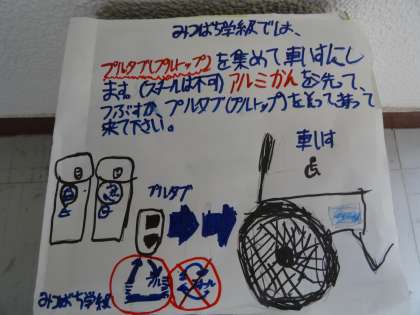 みつばち学級では、
プルタブ(プルトップ)を集めて車いすにし
ます。(スチールは不可)アルミかんを洗って、
つぶすか、プルタブ(プルトップ)をとって持って
来て下さい。
車いす
プルタブ
アルミ
スチール
みつばち学級